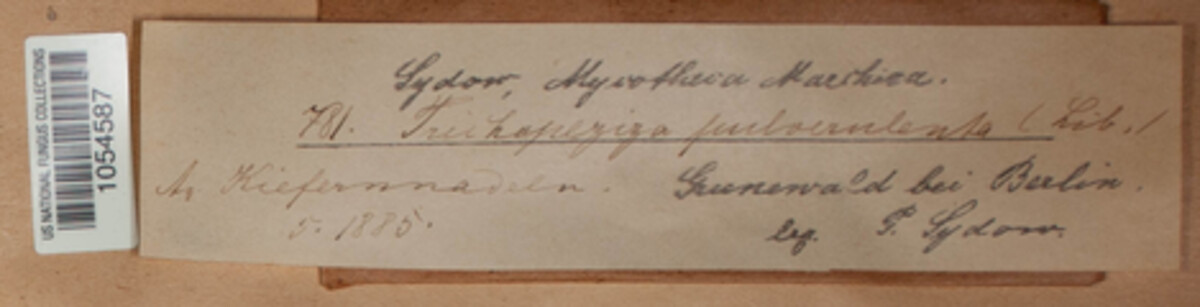 US NATIONAL FUNGUS COLLECTIONS
1054587
Sydow, Mycotheca Marchica.
781. Trichopeziza pulverulenta (Lib.)
An Kiefernnadeln.
5. 1885.
Grunewald bei Berlin.
leg. P. Sydow.